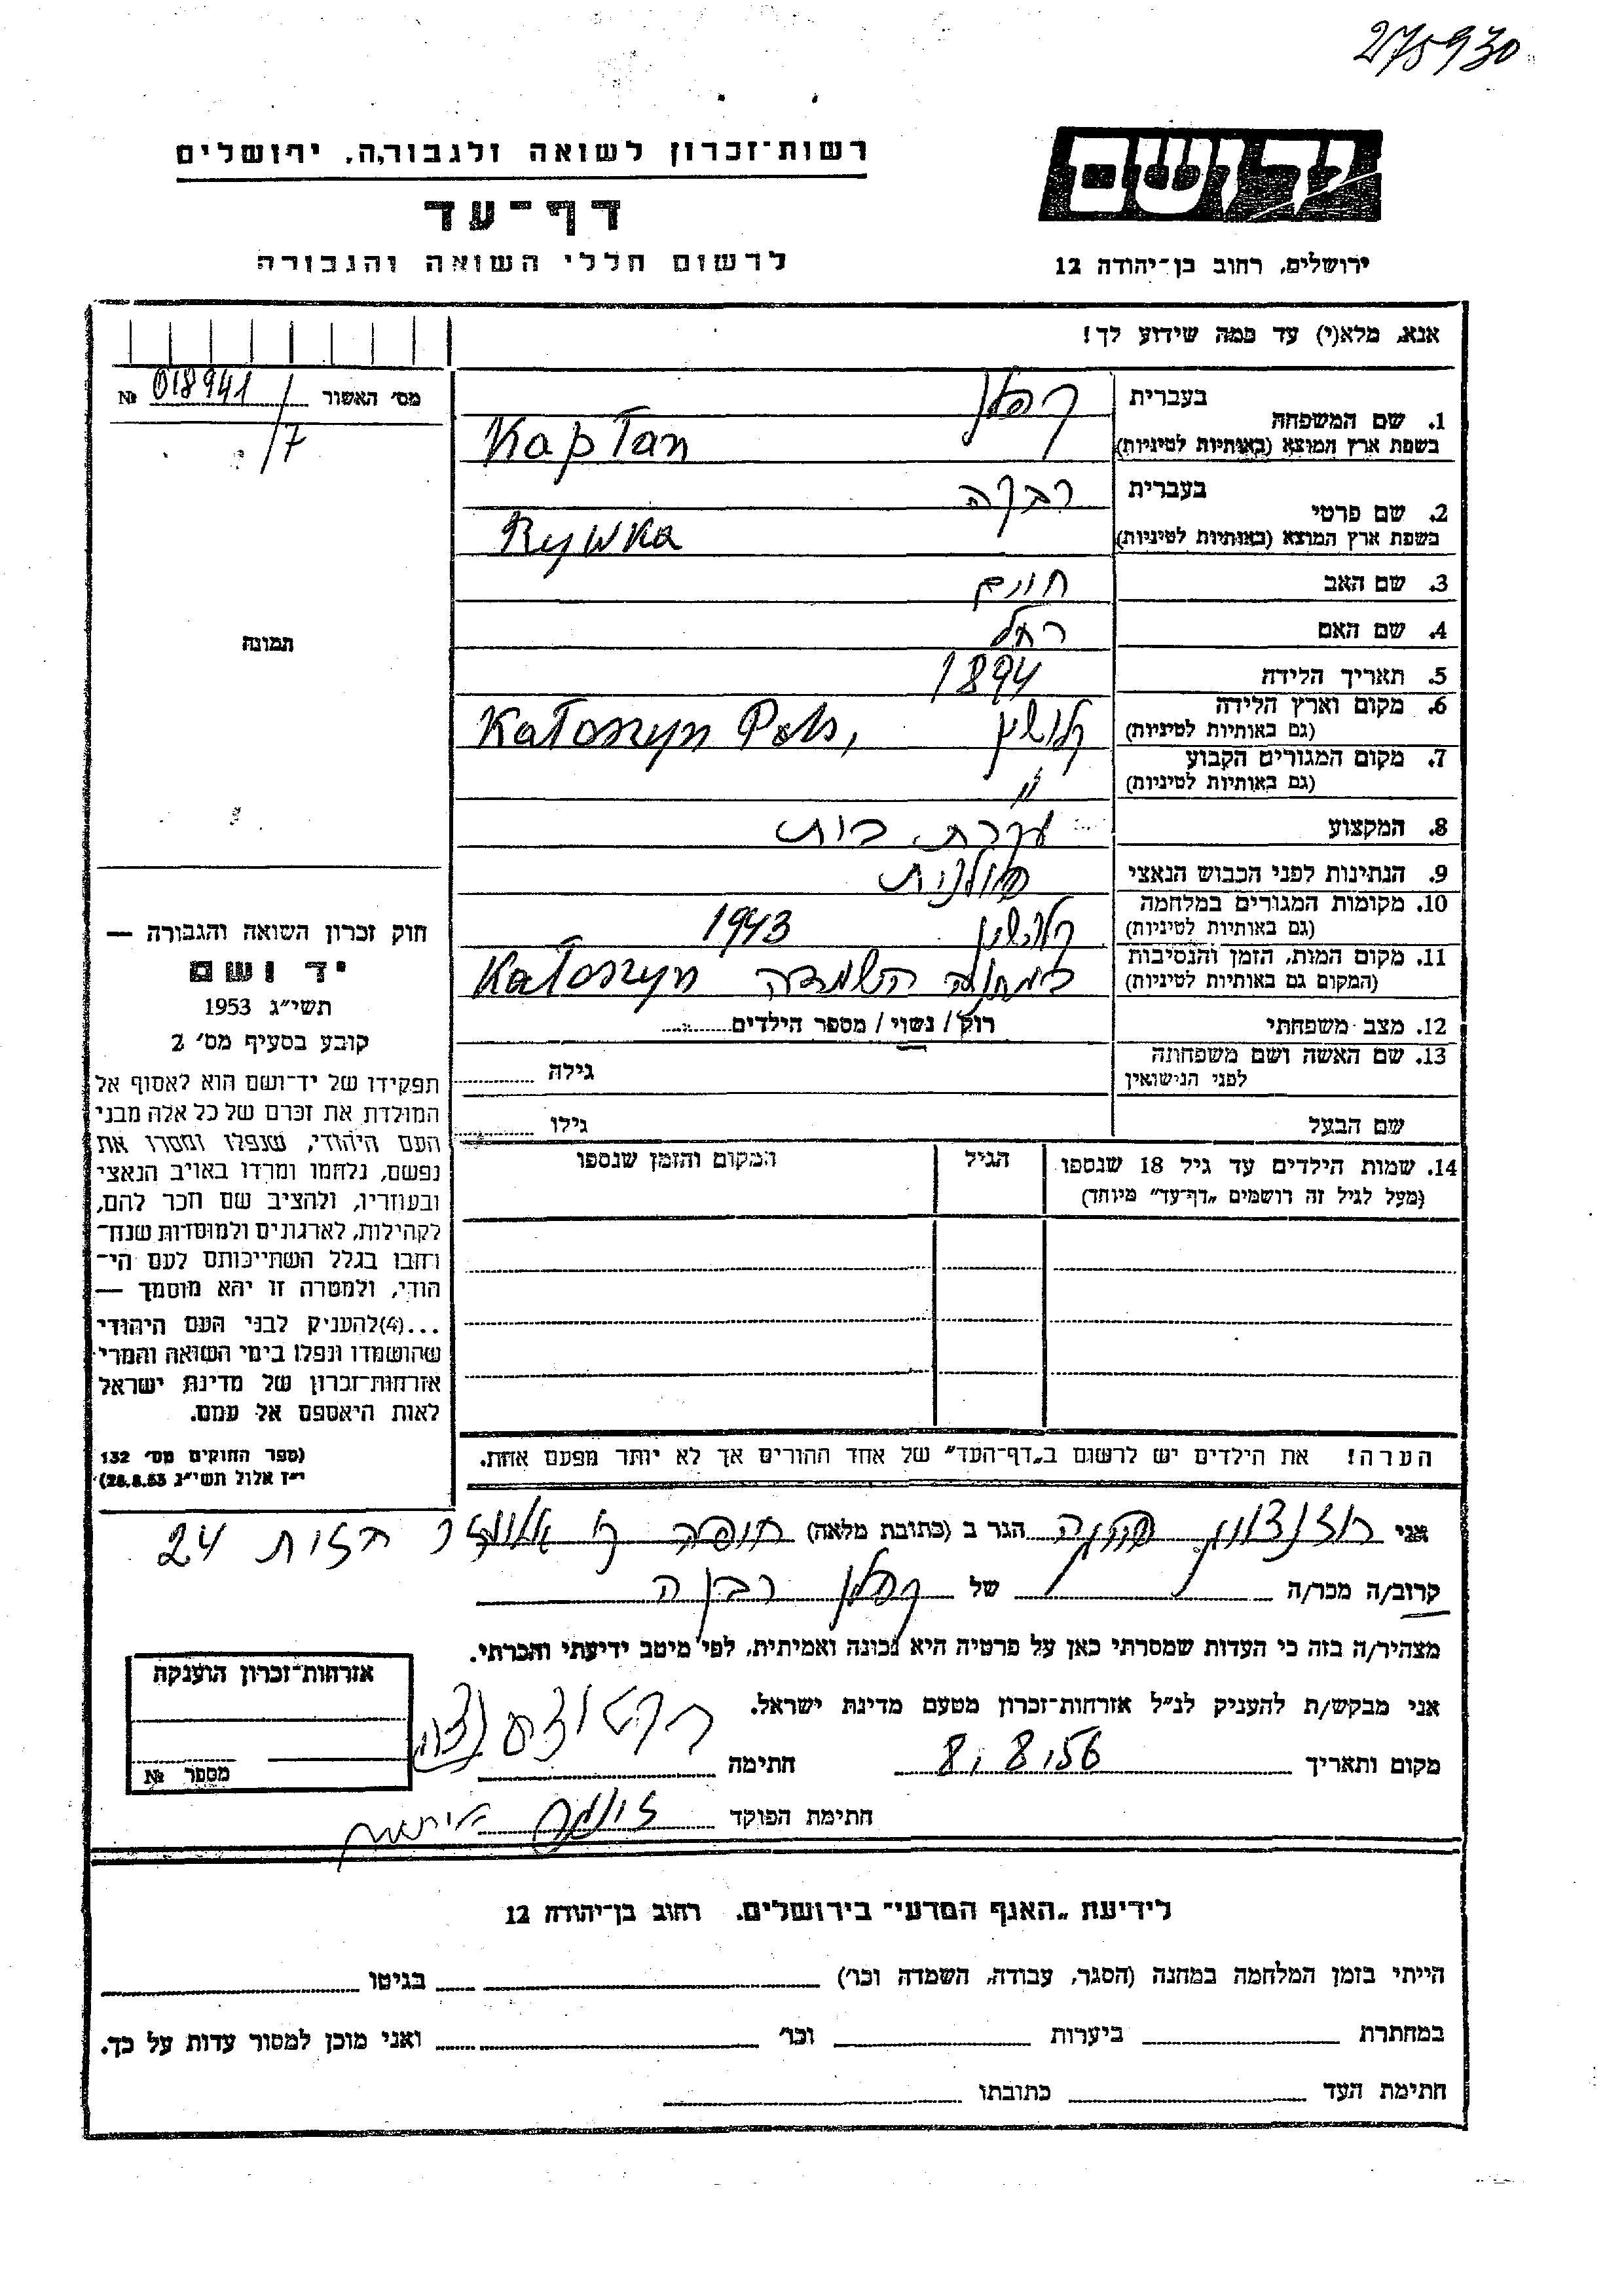 275930
יד ושם
רשות־זכרון לשואה ולגבורה, ירושלים
דף־עד
לרשום חללי השואה והגבורה
ירושלים, רחוב בן־יהודה 12
אנא, מלא(י) עד כמה שידוע לך!
מס׳ האשור 018941 №
/7
1. שם המשפחה
בעברית קפלן
בשפת ארץ המוצא (באותיות לטיניות) Kaplan
2. שם פרטי
בעברית רבקה
בשפת ארץ המוצא (באותיות לטיניות) Rywka
3. שם האב חיים
4. שם האם רחל
5. תאריך הלידה 1894
6. מקום וארץ הלידה
(גם באותיות לטיניות) קלושין Kaloszyn
7. מקום המגורים הקבוע
(גם באותיות לטיניות) "
8. המקצוע עקרת בית
9. הנתינות לפני הכבוש הנאצי פולנית
10. מקומות המגורים במלחמה
(גם באותיות לטיניות) קלושין 1943
11. מקום המות, הזמן והנסיבות
(המקום גם באותיות לטיניות) במחנה השמדה Kaloszyn
12. מצב משפחתי רוק / נשוי / מספר הילדים
13. שם האשה ושם משפחתה
לפני הנישואין גילה
שם הבעל גילו
14. שמות הילדים עד גיל 18 שנספו
(מעל לגיל זה רושמים „דף־עד" מיוחד)
הגיל
המקום והזמן שנספו
הערה! את הילדים יש לרשום ב„דף־העד" של אחד ההורים אך לא יותר מפעם אחת.
תמונה
חוק זכרון השואה והגבורה —
יד ושם
תשי״ג 1953
קובע בסעיף מס׳ 2
תפקידו של יד־ושם הוא לאסוף אל
המולדת את זכרם של כל אלה מבני
העם היהודי, שנפלו ומסרו את
נפשם, נלחמו ומרדו באויב הנאצי
ובעוזריו, ולהציב שם וזכר להם,
לקהילות, לארגונים ולמוסדות שנח־
רובו בגלל השתייכותם לעם הי־
הודי, ולמטרה זו יהא מוסמך —
...(4) להעניק לבני העם היהודי
שהושמדו ונפלו בימי השואה והמרי
אזרחות־זכרון של מדינת ישראל
לאות היאספם אל עמם.
(ספר החוקים מס׳ 132
י״ז אלול תשי״ג 28.8.53)
אני הגר ב (כתובת מלאה) חיפה 24
קרוב/ה מכר/ה של קפלן רבקה
מצהיר/ה בזה כי העדות שמסרתי כאן על פרטיה היא נכונה ואמיתית, לפי מיטב ידיעתי והכרתי.
אני מבקש/ת להעניק לנ״ל אזרחות־זכרון מטעם מדינת ישראל.
מקום ותאריך 8.8.56 חתימה
חתימת הפוקד
אזרחות־זכרון הוענקה
מספר №
לידיעת „האגף המדעי" בירושלים. רחוב בן־יהודה 12
הייתי בזמן המלחמה במחנה (הסגר, עבודה, השמדה וכו׳) בגיטו
במחתרת ביערות וכו׳ ואני מוכן למסור עדות על כך.
חתימת העד כתובתו